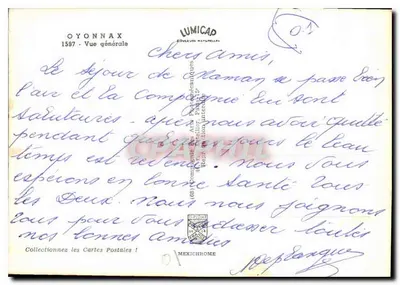 OYONNAX
1587 - Vue générale
LUMICAP
COULEURS NATURELLES
0.1
Chers Amis,
Le séjour de Maman se passe bien
l'air et la Compagnie lui sont
salutaires - après nous avoir quitté
pendant quelques jours le beau
temps est revenu. Nous vous
espérons en bonne santé tous
les Deux. Nous nous joignons
tous pour vous adresser toutes
nos bonnes amitiés
Collectionnez les Cartes Postales !
MEXICHROME